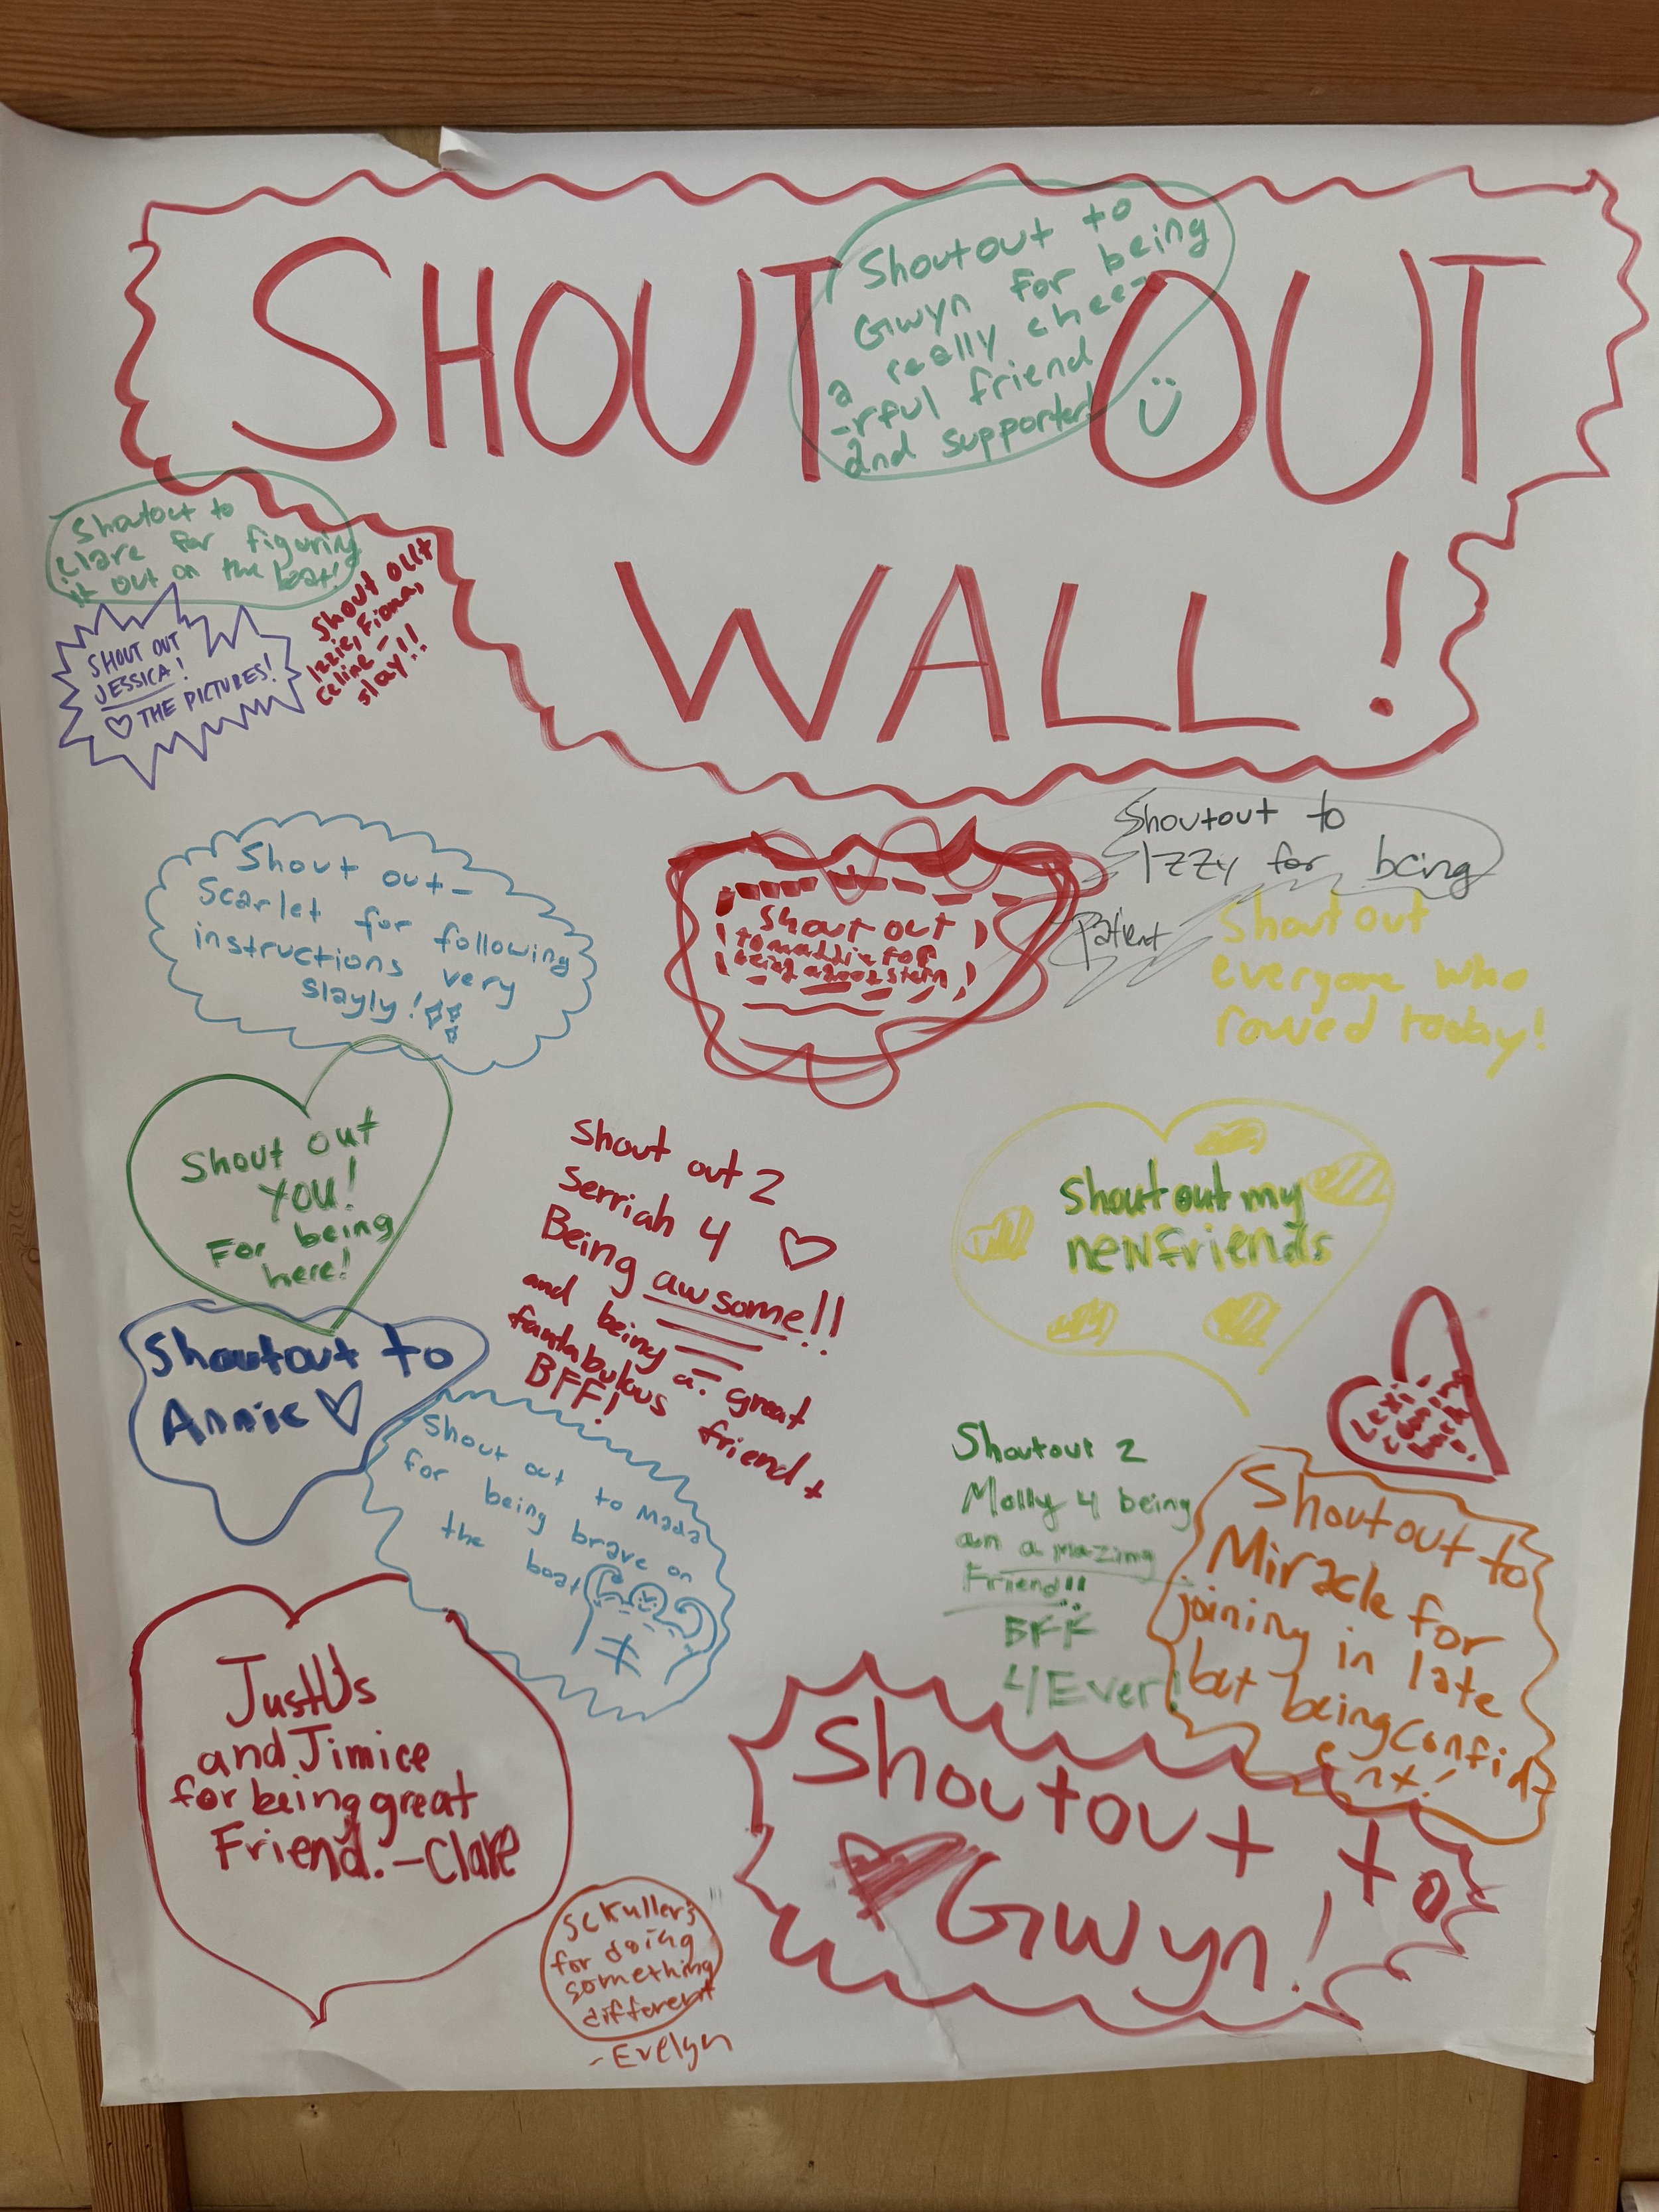 SHOUT OUT
WALL!
Shoutout to
Gwyn for being
a really chee-
-rful friend
and supporter!
Shoutout to
Clare for figuring
it out on the boat!
SHOUT OUT
JESSICA!
♡ THE PICTURES!
Shout out
Izzie, Fiona,
Celine -
slay!!
Shout out-
Scarlet for following
instructions very
slayly!
Shout out
to maddie for
being a good
Shoutout to
Izzy for being
patient
Shout out
everyone who
rowed today!
Shout out
YOU!
For being
here!
Shout out 2
Serriah 4
Being awsome!!
and being a great friend +
fantabulous
BFF!
Shout out my
new friends
Shoutout to
Annie ♡
Shout out to Mada
for being brave on
the boat
Shoutout 2
Molly 4 being
an amazing
Friend!!
BFF
4/Ever!
Shoutout to
Miracle for
joining in late
but being confid
ent!
JustUs
and Jimice
for being great
Friend. -Clare
Sckullers
for doing
something
different
-Evelyn
Shoutout to
Gwyn!